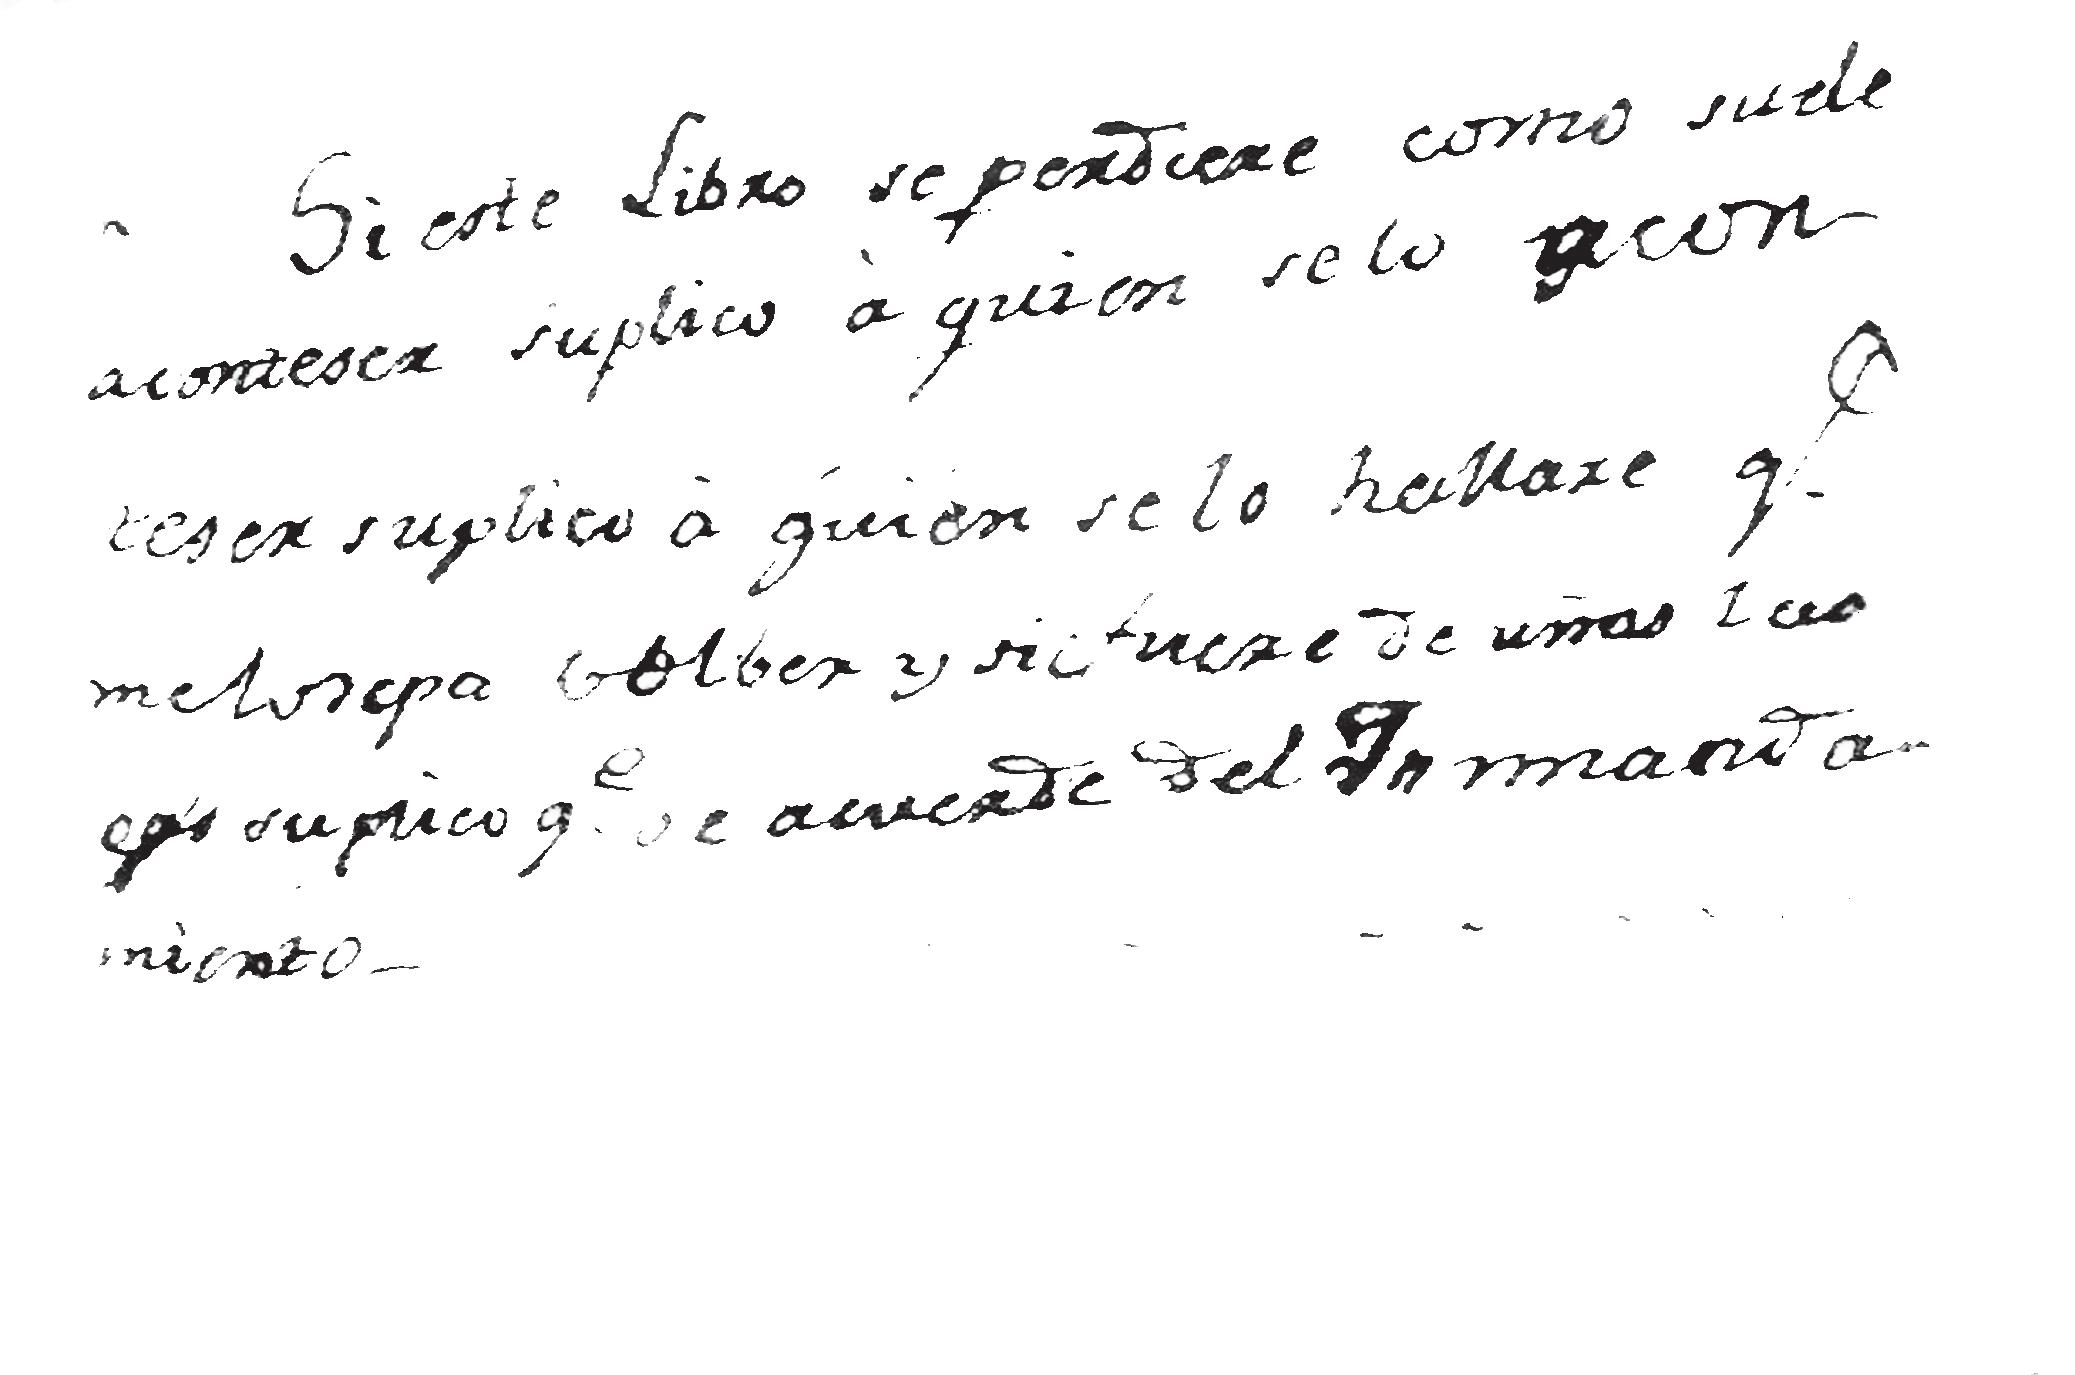 Si este Libro se perdiere como suele
aconteser suplico à quien se lo acon-
teser suplico à quien se lo hallare qe.
melosepa bolber y si fuere de uñas lar
gas suplico qe. se acuerde del In manda-
miento-